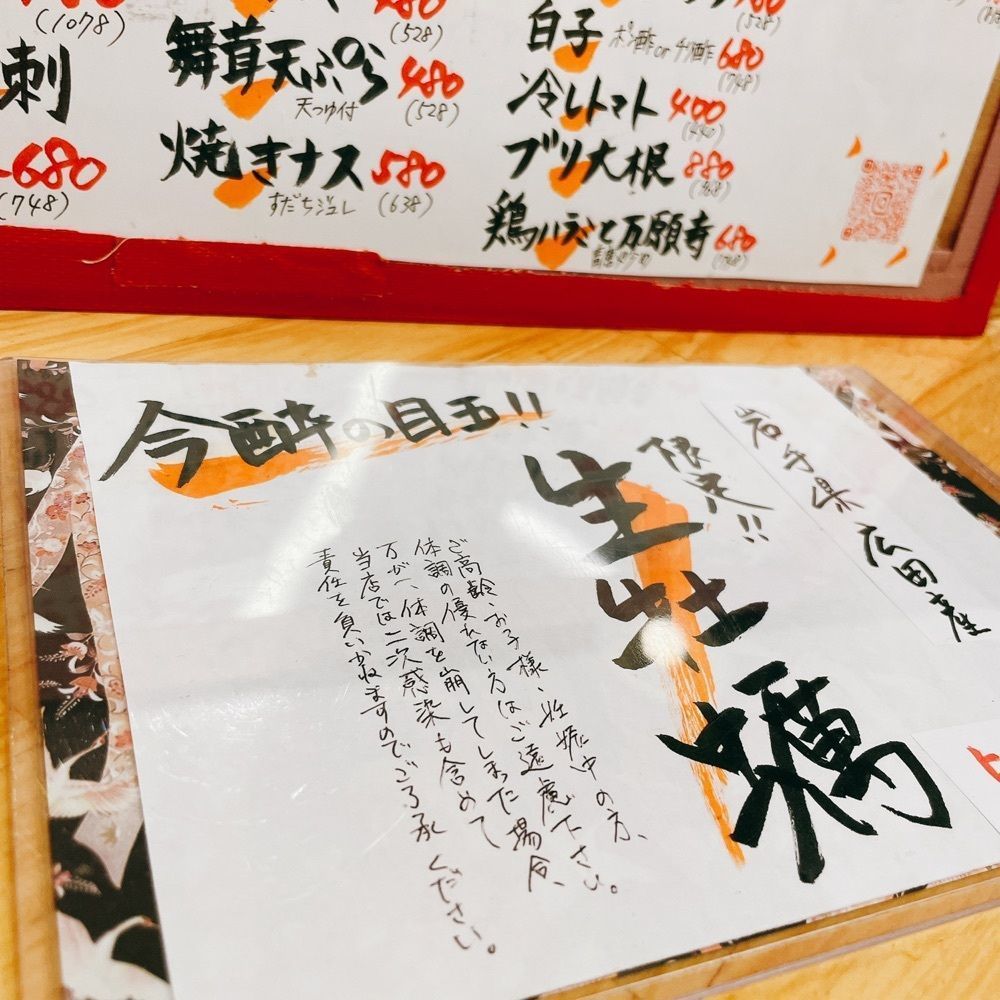 (1078)
(528)
(528)
刺
舞茸天ぷら 480
天つゆ付 (528)
白子 ポン酢orチリ酢 680
(748)
冷しトマト 400
680
(748)
焼きナス 580
すだちジュレ (638)
ブリ大根 880
鶏ハラミと万願寺 680
今酔の目玉!!
岩手県広田産
限定!!
生牡蠣
ご高齢、お子様、妊娠中の方、
体調の優れない方はご遠慮下さい。
万が一、体調を崩してしまった場合、
当店では二次感染も含めて
責任を負いかねますのでご了承ください。